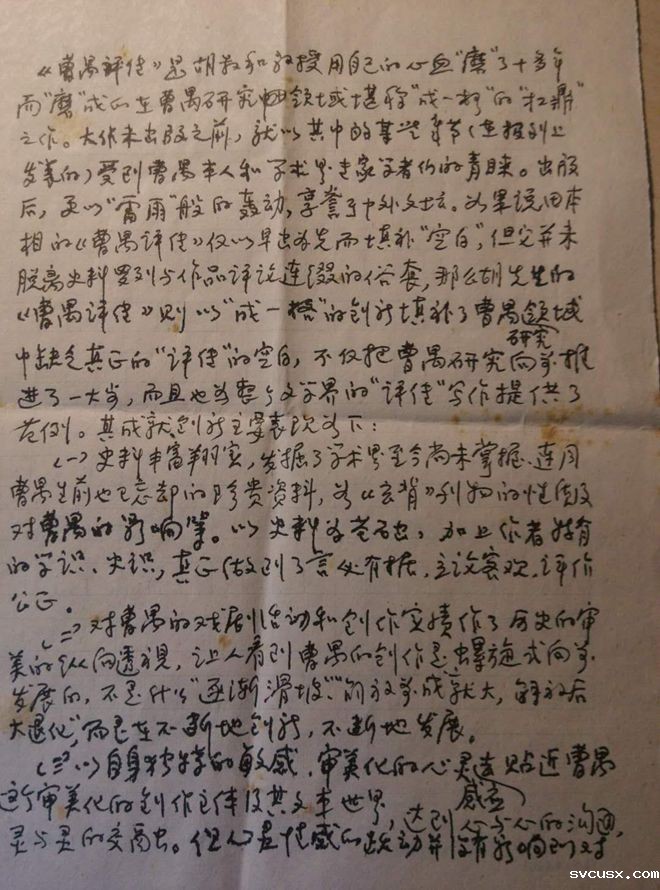 《曹禺评传》是胡叔和教授用自己的心血"磨"了十多年
而"磨"成的在曹禺研究中领域堪称"成一格"的"扛鼎"
之作。大作未出版之前，就以其中的某些章节（在报刊上
发表的）受到曹禺本人和学术界专家学者们的青睐。出版
后，更以"雷雨"般的轰动，享誉了中外文坛。如果说田本
相的《曹禺评传》仅以早出为先而填补"空白"，但它并未
脱离史料罗列与作品评论连缀的俗套，那么胡先生的
《曹禺评传》则以"成一格"的创新填补了曹禺研究领域
中缺乏真正的"评传"的空白，不仅把曹禺研究向前推
进了一大步，而且也为整个文学界的"评传"写作提供了
范例。其成就创新主要表现如下：
（一）史料丰富翔实，发掘了学术界至今尚未掌握、连同
曹禺生前也已忘却的珍贵资料，为《玄背》刊物的性质及
对曹禺的影响等。以史料为基石，加上作者特有
的学识、史识，真正做到了言必有据，立论客观，评价
公正。
（二）对曹禺的戏剧活动和创作实绩作了历史的审
美的纵向透视，让人看到曹禺的创作是螺旋式向前
发展的，不是什么"逐渐滑坡"、"解放前成就大，解放后
大退化"，而是在不断地创新，不断地发展。
（三）以自身独特的敏感、审美化的心灵去贴近曹禺
这个审美化的创作主体及其文本世界，达到心与心的沟通，
灵与灵的交
svcusx.com